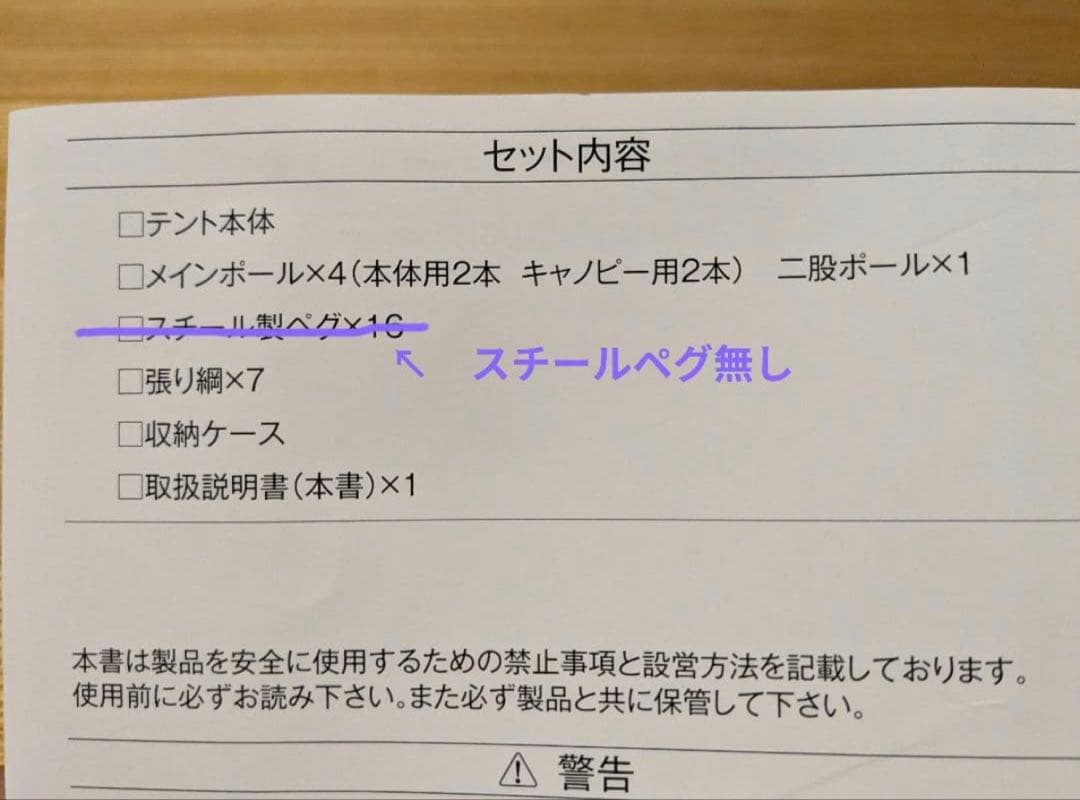 セット内容
□テント本体
□メインポール×4(本体用2本 キャノピー用2本) 二股ポール×1
□スチール製ペグ×16
↖ スチールペグ無し
□張り綱×7
□収納ケース
□取扱説明書(本書)×1
本書は製品を安全に使用するための禁止事項と設営方法を記載しております。
使用前に必ずお読み下さい。また必ず製品と共に保管して下さい。
⚠ 警告